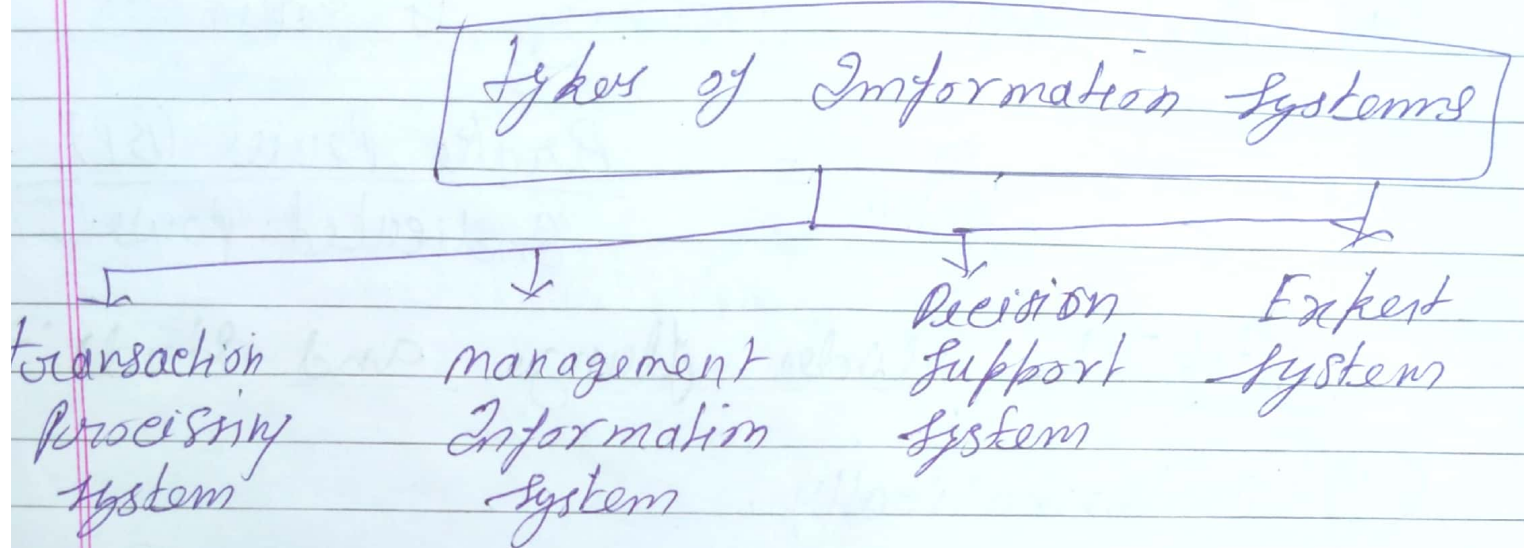 Types of Information Systems
Transaction
Processing
System
management
Information
System
Decision
Support
System
Expert
System